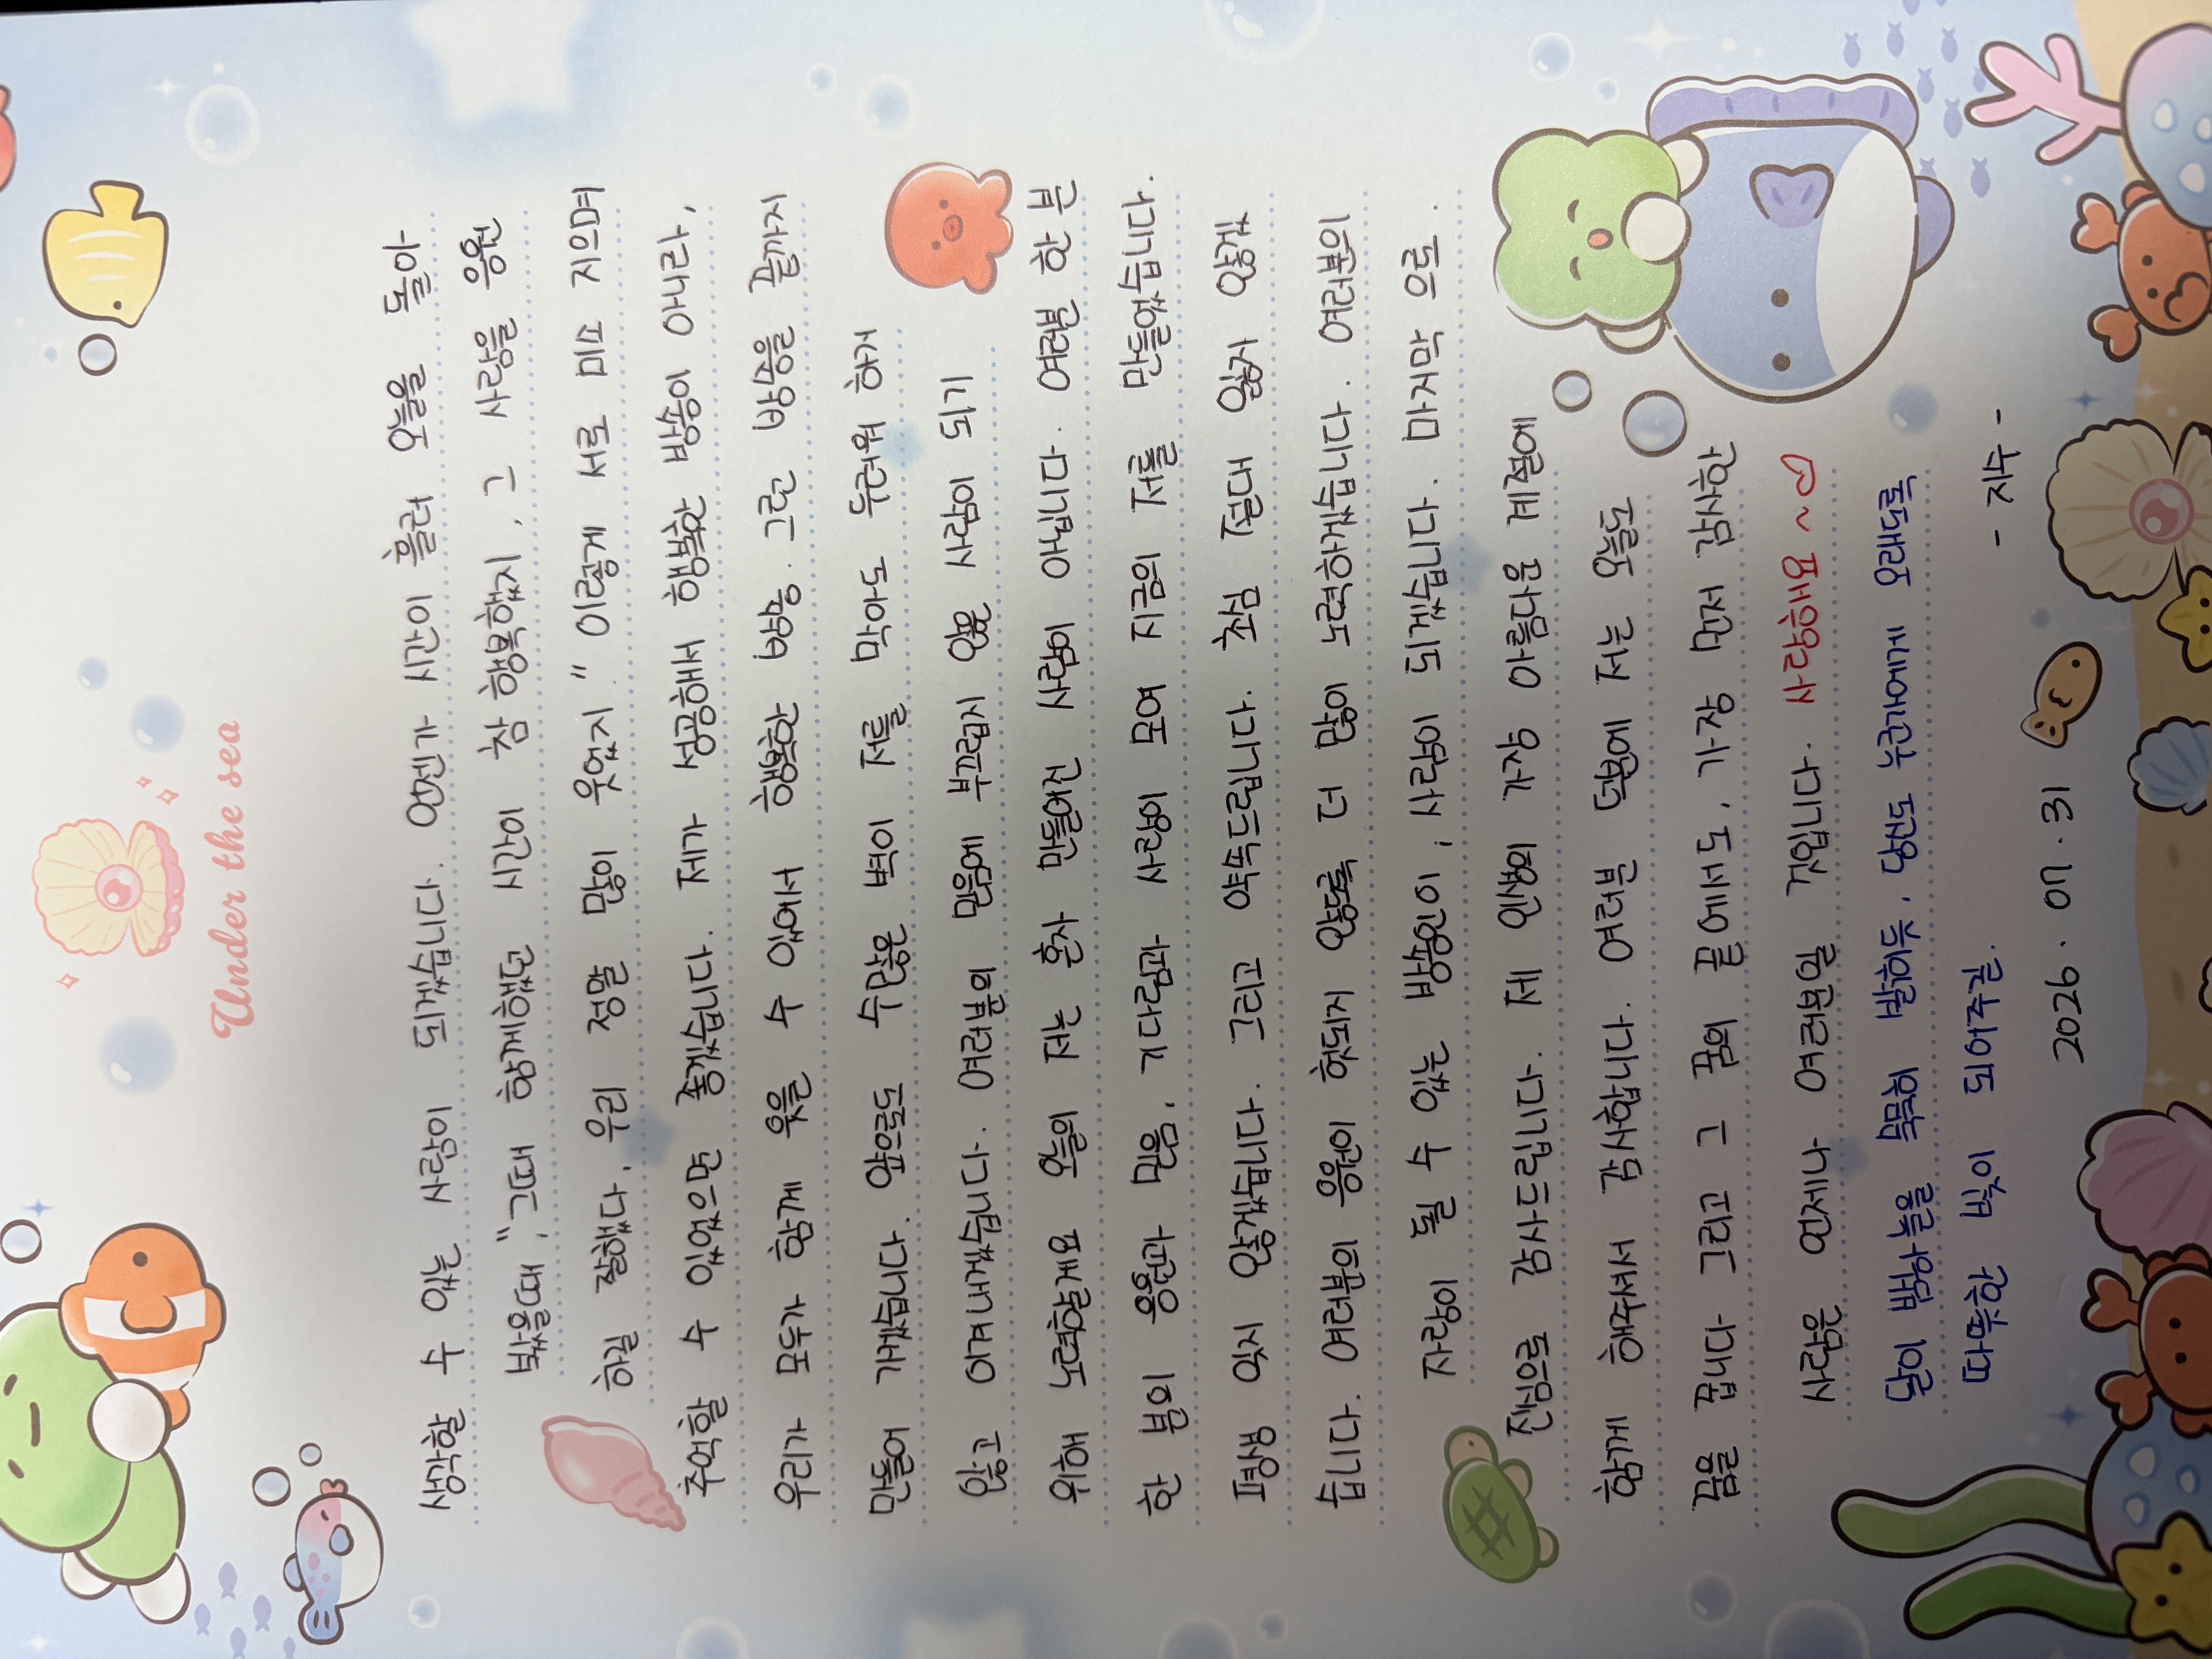 Under the sea
생각할 수 있는 사람이 되겠습니다. 언젠가 시간이 흘러 오늘을 돌아
봤을때, "그때 함께했던 시간이 참 행복했지, 그 사람을 응원
하길 잘했다. 우리 정말 많이 웃었지." 이렇게 서로 미소 지으며
추억할 수 있었으면 좋겠습니다. 제가 성공해서 행복한 방송이 아니라,
우리가 모두가 함께 웃을 수 있어서 행복한 방송. 그런 방송을 끝까지
만들어 가겠습니다. 앞으로도 수많은 벽이 저를 막아도 두려워 하지
않고 이겨내겠습니다. 여러분의 믿음에 부끄럽지 않은 사람이 되기
위해 노력할게요 오늘의 저는 혼자 만들어진 사람이 아닙니다. 여러분 한 분
한 분의 응원과 믿음, 기다림과 사랑이 모여 지금의 저를 만들었습니다.
평생 잊지 않겠습니다. 그리고 약속드립니다. 초심 절대로 잃지 않겠
습니다. 여러분의 응원이 헛되지 않도록 더 많이 노력하겠습니다. 여러분의
자랑이 될 수 있는 방송인, 사람이 되겠습니다. 마지막으로.
진심으로 감사드립니다. 제 인생의 가장 아름다운 계절에
함께 해주셔서 감사합니다. 여러분 덕분에 저는 오늘도
꿈을 꿉니다 그리고 그 꿈의 끝에서도, 가장 먼저 감사할
사람은 언제나 여러분일 것입니다. 사랑해요~♡
달이 밤하늘을 묵묵히 밝히듯, 당신도 누군가에게 오래도록
따뜻한 빛이 되어주길.
- 지수 -
2026. 07. 31